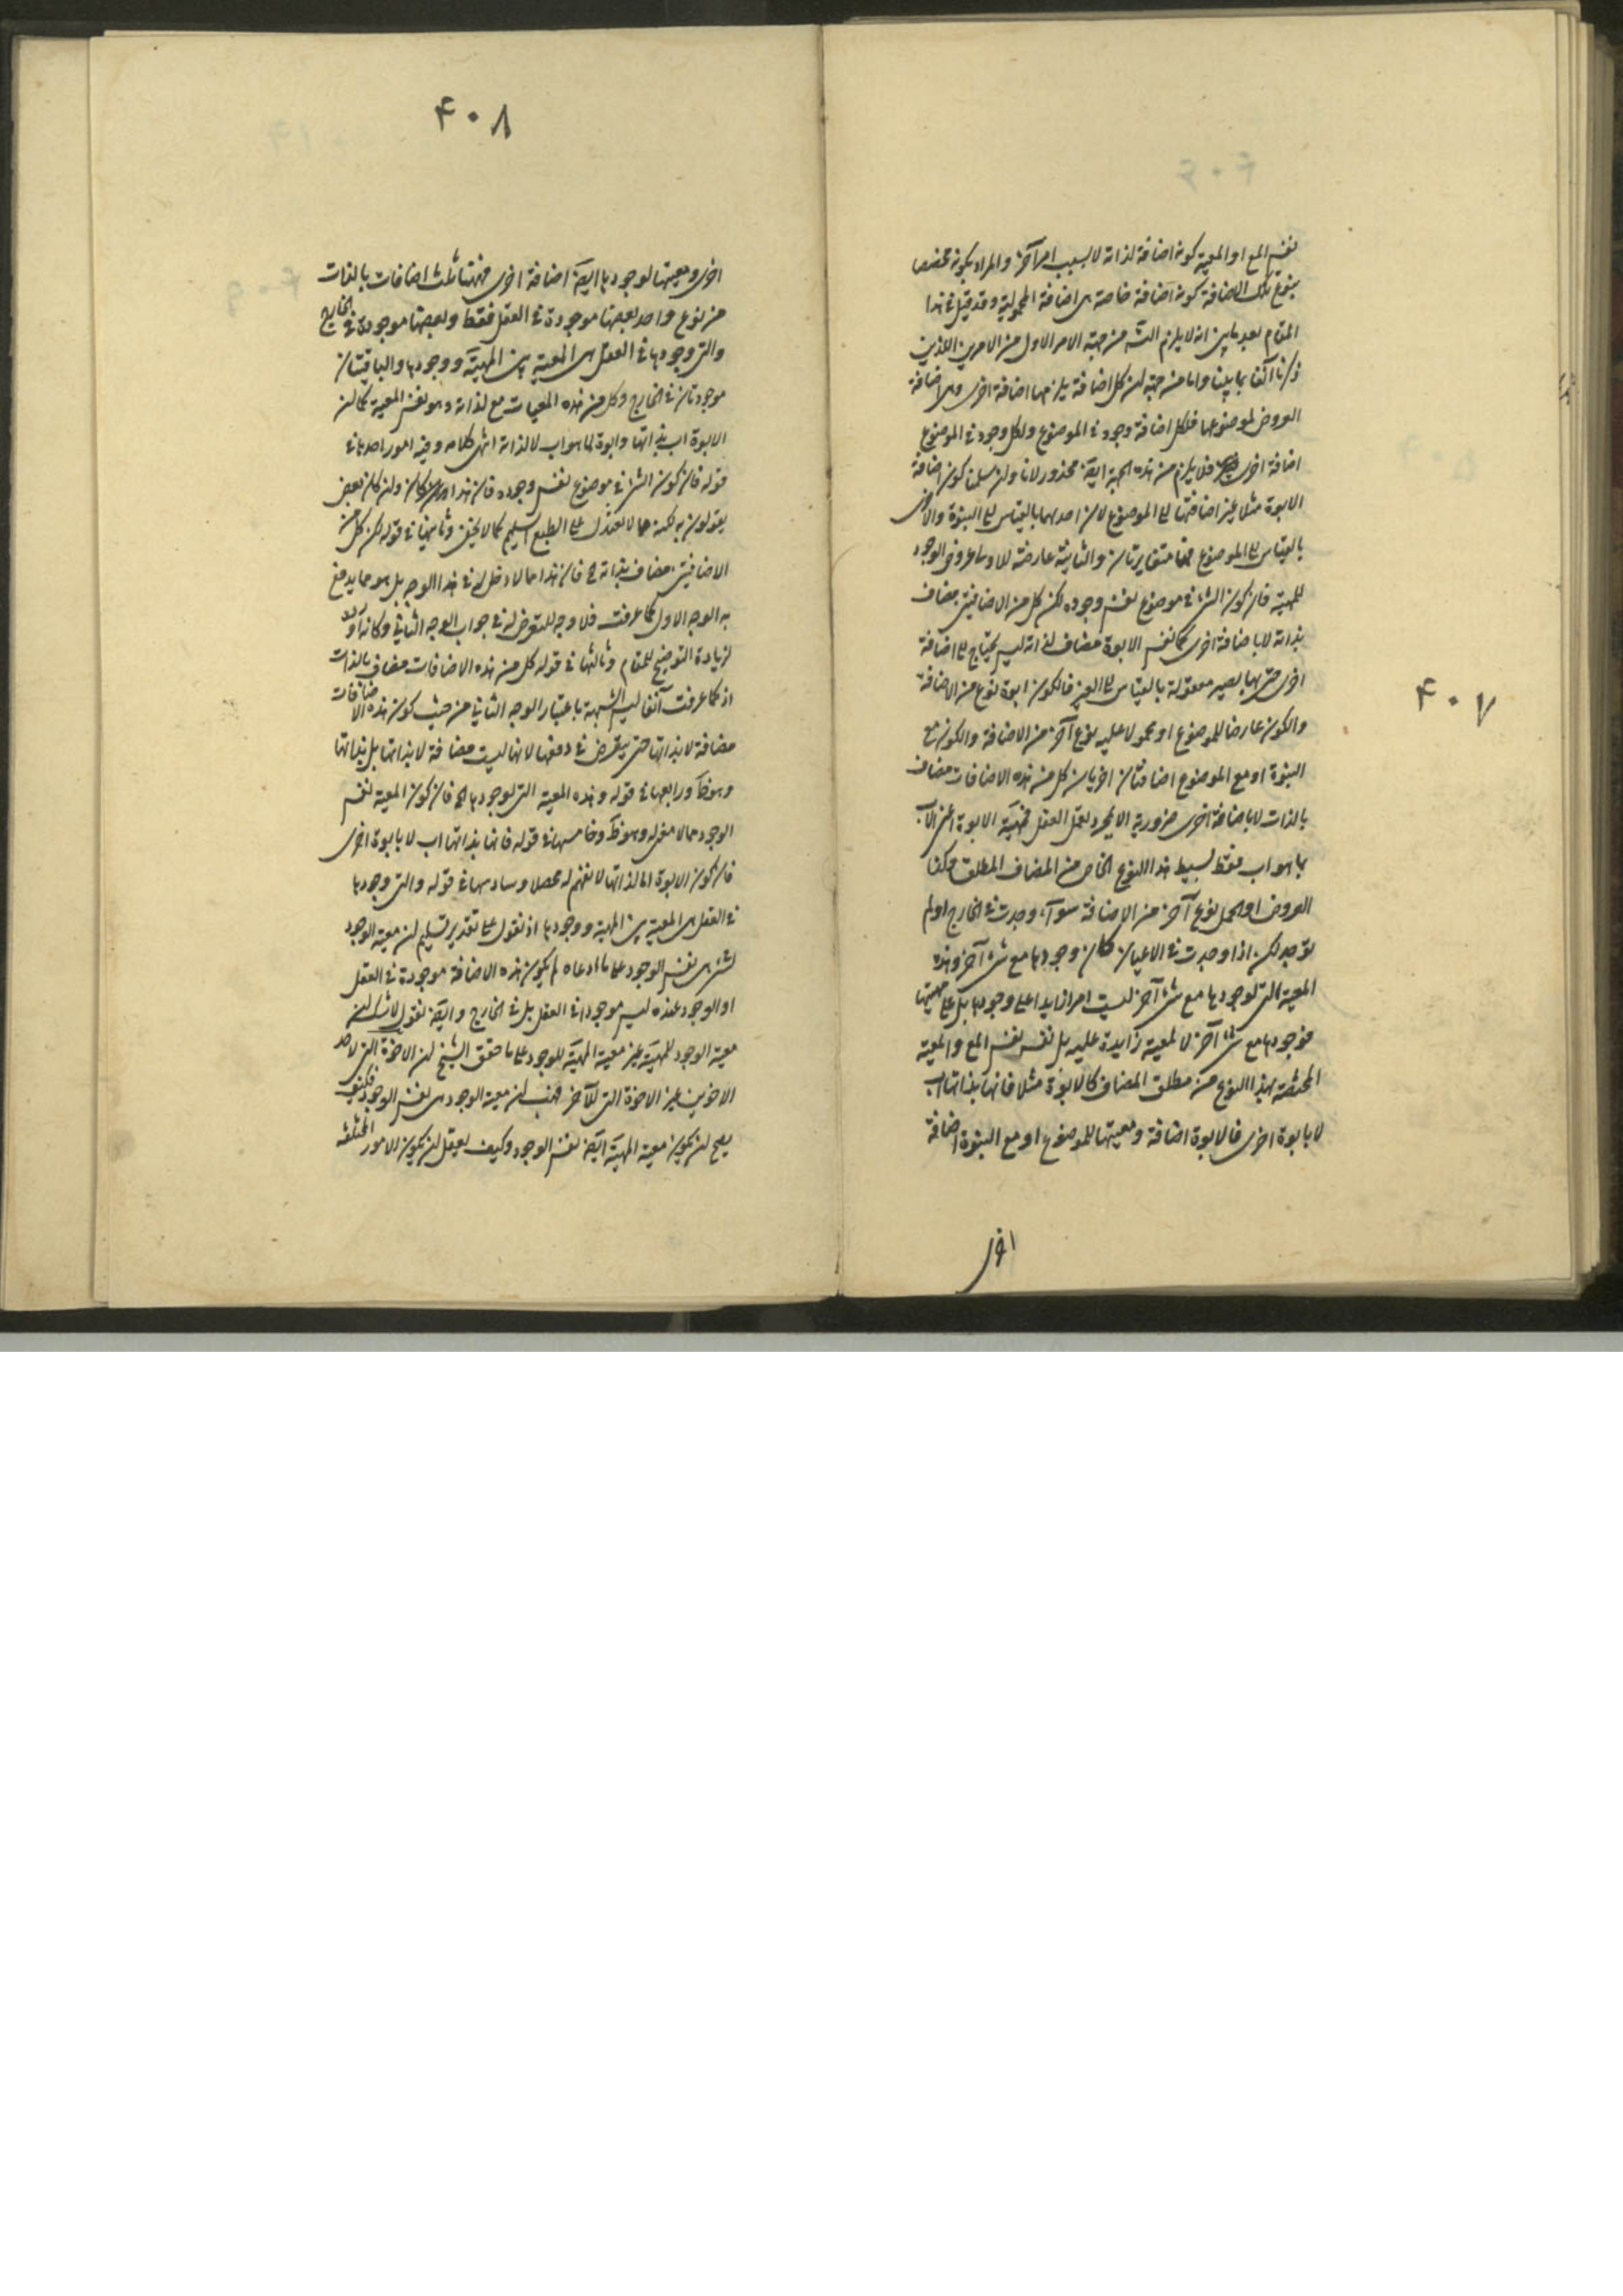 ۴۰۷
نفس المع او المعية كونه اضافة لذاته لا بسبب امر آخر والمراد بكونه مخصصا
بنوع تلك الاضافة كونه اضافة خاصة هى اضافة المحمولية وقد قيل فى هذا
المقام بعد بيان انه لا يلزم التسه من جهة الامر الاول من الامرين اللذين
ذكرنا آنفا بما بينا واما من جهة ان كل اضافة يلزمها اضافة اخرى وهى اضافة
العروض لموضوعها فلكل اضافة وجود فى الموضوع ولكل وجود فى الموضوع
اضافة اخرى فلا يلزم من هذه الجهة ايضا محذور لانا وان سلمنا كون اضافة
الابوة مثلا غير اضافتها الى الموضوع لان احديهما بالقياس الى البنوة والاخرى
بالقياس الى الموضوع فهما متغايرتان والثانية عارضة للاولى عروض الوجود
للمهية فان كون الشئ فى موضوع نفس وجوده لكن كل من الاضافتين مضاف
بذاته لا باضافة اخرى كما نفس الابوة مضاف لذاته ليس يحتاج الى اضافة
اخرى حتى بها يصير معقولة بالقياس الى الغير فالكون ابوة نوع من الاضافة
والكون عارضا للموضوع او محمولا عليه نوع آخر من الاضافة والكون مع
البنوة او مع الموضوع اضافتان اخريان كل من هذه الاضافات مضاف
بالذات لا باضافة اخرى ضرورية الا بمجرد تعمل العقل فمهية الابوة اعنى الاب
بما هو اب فقط بسيط هذا النوع الخاص من المضاف المطلق وكذا
العروض او الحمل نوع آخر من الاضافة سواء وجدت فى الخارج او لم
توجد لكن اذا وجدت فى الاعيان كان وجودها مع شئ آخر وهذه
المعية التى لوجودها مع شئ آخر ليست امرا زايدا على وجودها بل على مهيتها
فوجودها مع شئ آخر لا لمعية زايدة عليه بل نفسه نفس المع والمعية
المختصة بهذا النوع من مطلق المضاف كالابوة مثلا فانها بذاتها اب
لا بابوة اخرى فالابوة اضافة ومعيتها للموضوع او مع البنوة اضافة
اخرى
۴۰۸
اخرى ومعيتها لوجودها ايضا اضافة اخرى فهنا ثلث اضافات بالذات
من نوع واحد بعضها موجودة فى العقل فقط وبعضها موجودة فى الخارج
والتى وجودها فى العقل هى المعية بين المهية ووجودها والباقيتان
موجودتان فى الخارج وكل من هذه المعيات مع لذاته وهو نفس المعية كما ان
الابوة اب بذاتها وابوة لما هو اب لا لذاته انتهى كلامه وفيه امور احدها فى
قوله فان كون الشئ فى موضوع نفس وجوده فان هذا وان كان بعض
يقولون به لكنه مما لا يعتدل على الطبع السليم كما لا يخفى وثانيها فى قوله لكن كل من
الاضافتين مضاف بذاته الخ فان هذا مما لا دخل له فى هذا الوجه بل هو مما يدفع
به الوجه الاول كما عرفت فلا وجه للتعرض له فى جواب الوجه الثانى وكانه اورد
لزيادة التوضيح للمقام وثالثها فى قوله كل من هذه الاضافات مضاف بالذات
اذ كما عرفت آنفا ليس الشبهة باعتبار الوجه الثانى من حيث كون هذه الاضافات
مضافة لا بذاتها حتى يتعرض فى دفعها لانها ليست مضافة لا بذاتها بل بذاتها
وهو ظ ورابعها فى قوله وهذه المعية التى لوجودها الخ فان كون المعية نفس
الوجود مما لا معنى له وهو ظ وخامسها فى قوله فانها بذاتها اب لا بابوة اخرى
فان كون الابوة ابا لذاتها لا نفهم له محصلا وسادسها فى قوله والتى وجودها
فى العقل هى المعية بين المهية ووجودها اذ نقول على تقدير تسليم ان معية الوجود
لشئ هى نفس الوجود على ما ادعاه لم يكون هذه الاضافة موجودة فى العقل
او الوجود عنده ليس موجودا فى العقل بل فى الخارج وايضا نقول لا شك ان
معية الوجود للمهية غير معية المهية للوجود على ما حقق الشيخ ان الاخوة التى لاحد
الاخوين غير الاخوة التى للآخر فهب ان معية الوجود هى نفس الوجود فكيف
يصح ان يكون معية المهية ايضا نفس الوجود وكيف يعقل ان يكون الامور المختلفة